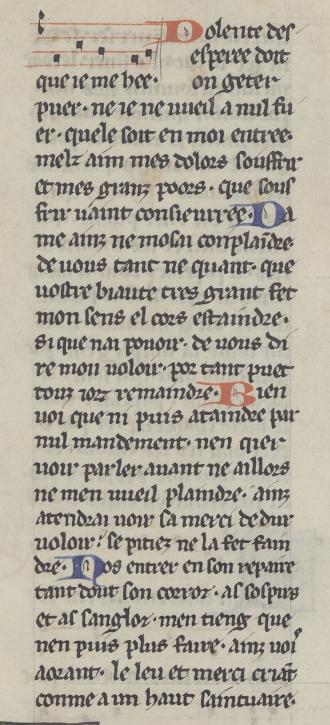 Dolente des
esperee doit
que ie me hee · on geter
puer · ne ie ne vueil a nul fu
er · quele soit en moi entree ·
melz aim mes dolors souffrir
et mes granz poors · que sous
frir vaint consieurree · Da
me ainz ne mosai conplaīdre ·
de vous tant ne quant · que
vostre biaute tres grant fet
mon sens el cors estaindre ·
si que nai pouoir · de vous di
re mon voloir · por tant puet
touz iorz remaindre · Bien
voi que ni puis ataindre par
nul mandement · nen quer
voir parler auant ne aillors
ne men vueil plaindre · ainz
atendrai voir sa merci de dur
voloir · se pitiez ne la fet fain
dre · Nos entrer en son repaire
tant dout son corroz · as sospirs
et as sangloz · men tieng que
nen puis plus faire · ainz voi
aorant · le leu et merci criāt
comme a un haut saintuaire ·